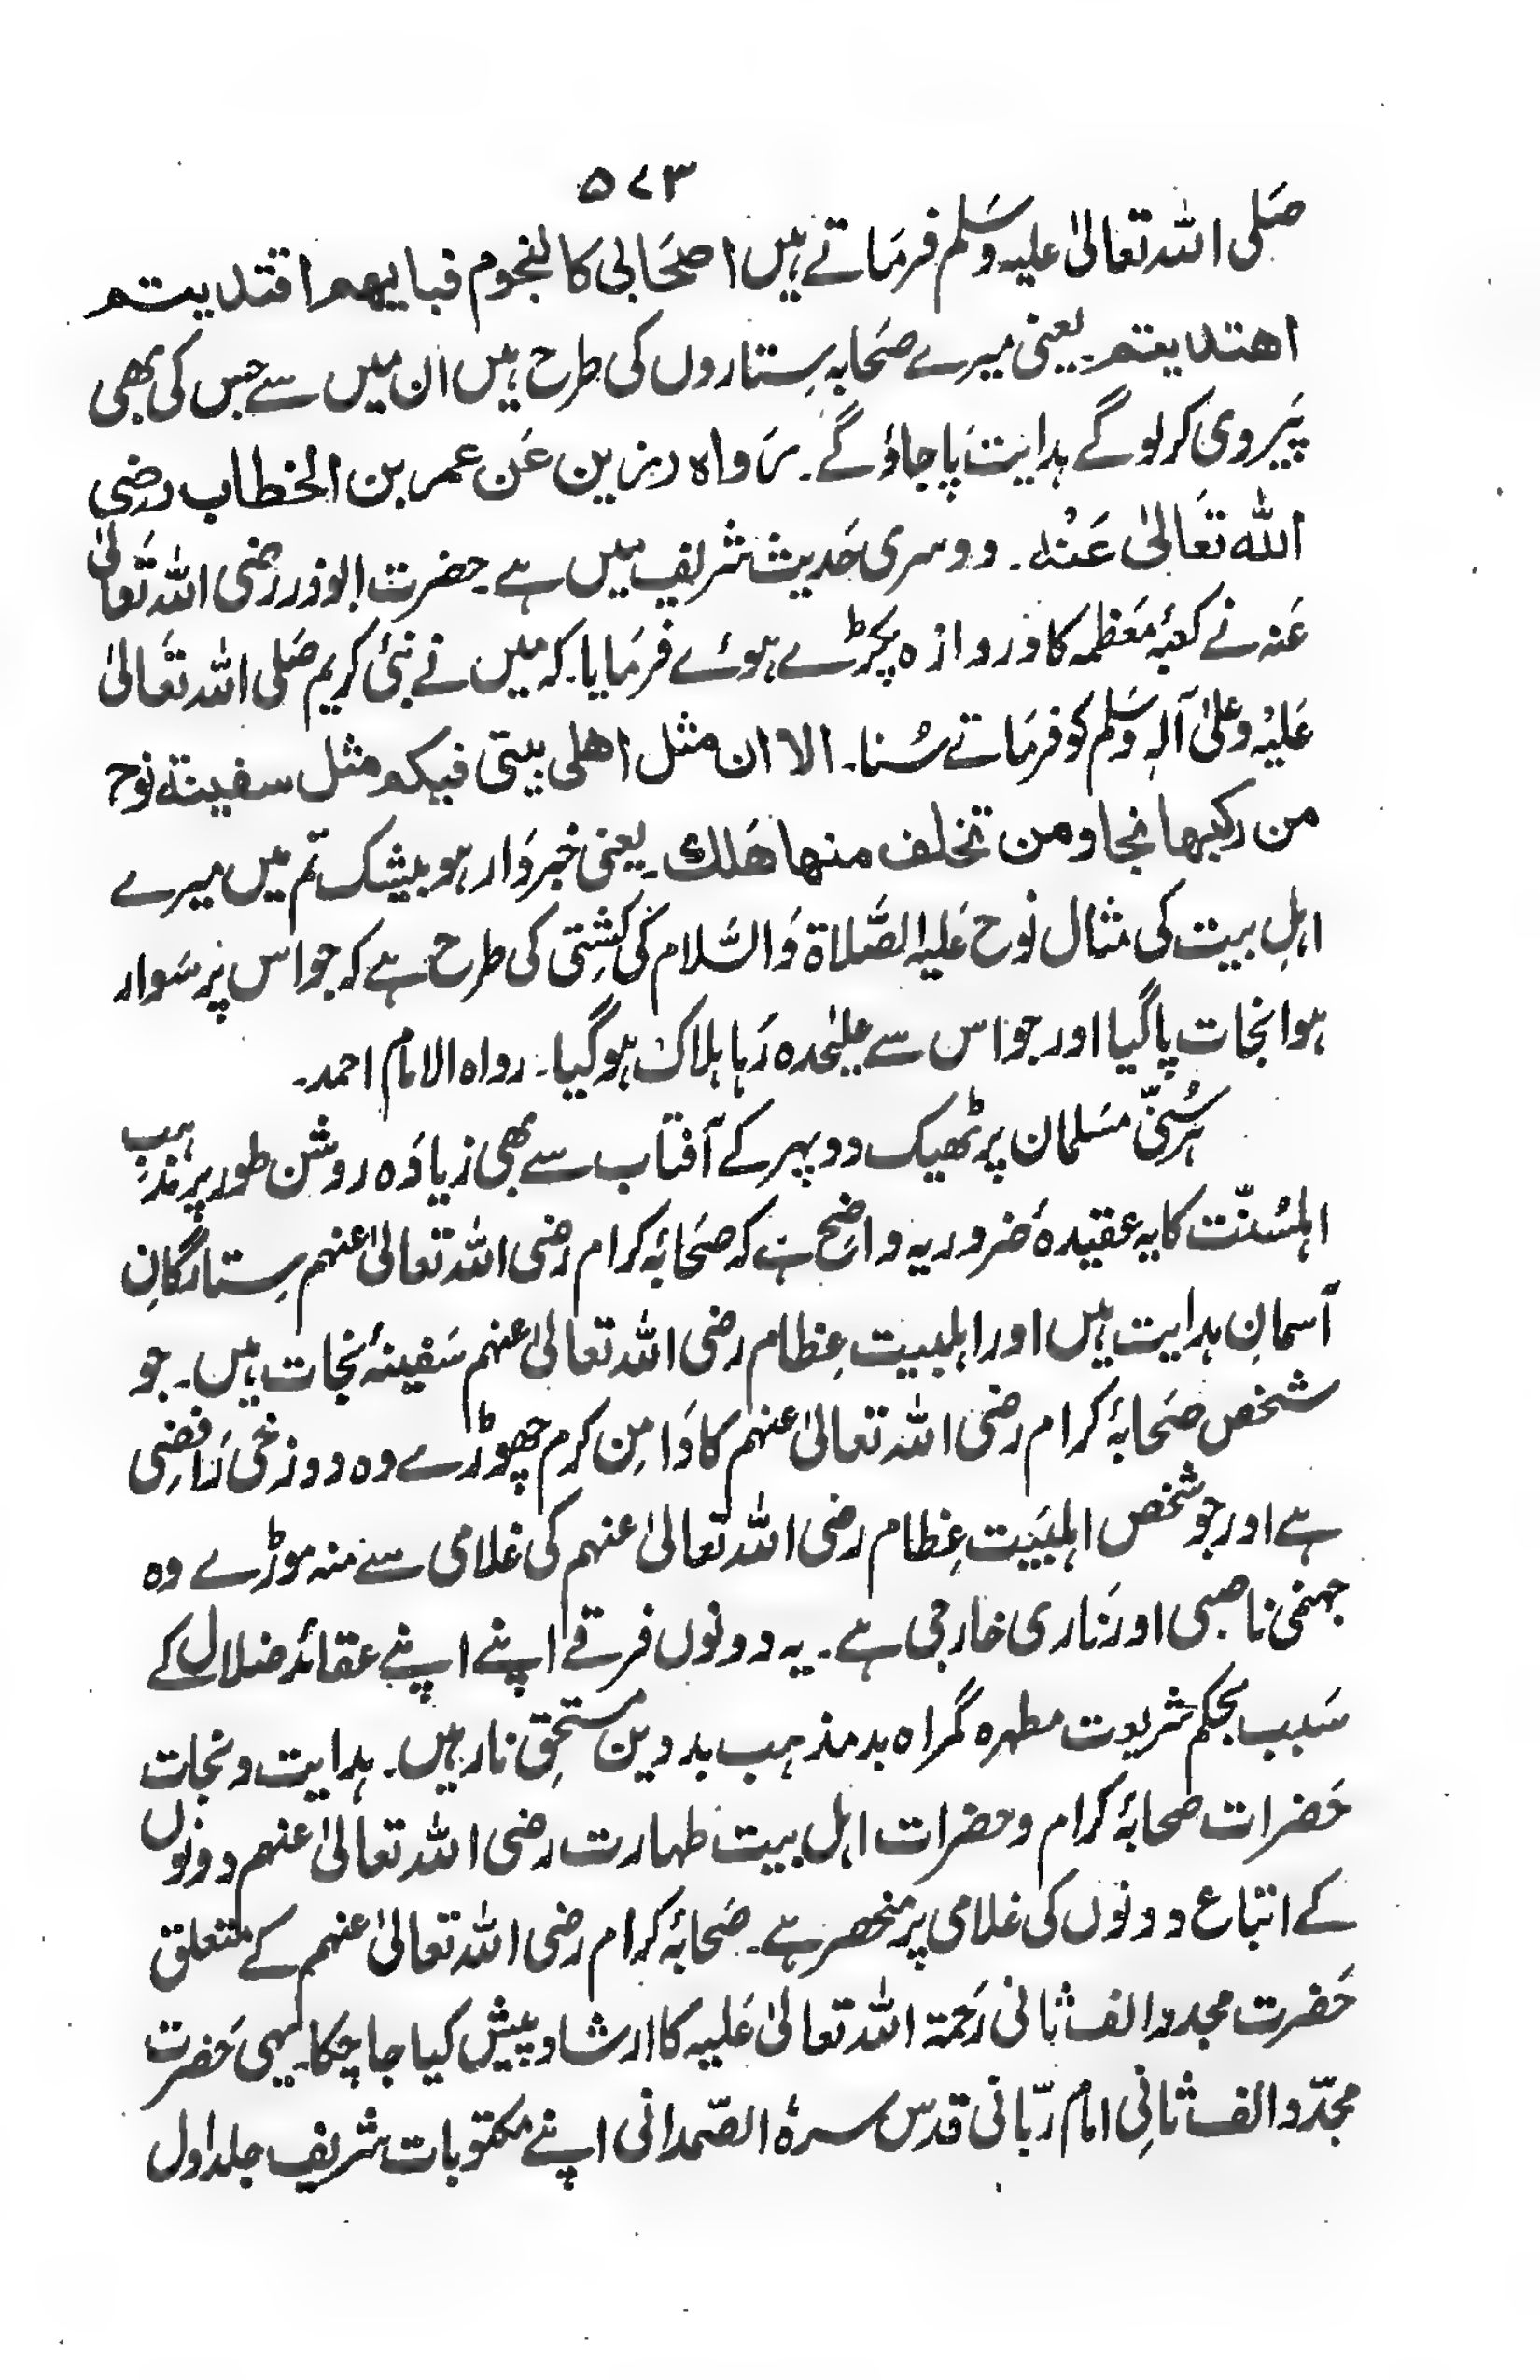 ۵۷۳
صلی اللہ تعالیٰ علیہ وسلم فرماتے ہیں اصحابی کالنجوم فبایھم اقتدیتم
اھتدیتم۔ یعنی میرے صحابہ ستاروں کی طرح ہیں ان میں سے جس کی بھی
پیروی کرلو گے ہدایت پا جاؤ گے۔ رواہ رزین عن عمر بن الخطاب رضی
اللہ تعالیٰ عنہ۔ دوسری حدیث شریف میں ہے۔ حضرت ابوذر رضی اللہ تعالیٰ
عنہ نے کعبۂ معظمہ کا دروازہ پکڑے ہوئے فرمایا کہ میں نے نبئ کریم صلی اللہ تعالیٰ
علیہ وعلیٰ آلہٖ وسلم کو فرماتے سُنا۔ الا ان مثل اھلی بیتی فیکم مثل سفینۃ نوح
من رکبھا نجا ومن تخلف منھا ھلک۔ یعنی خبردار ہو بیشک تم میں میرے
اہلِ بیت کی مثال نوح علیہ الصّلاۃ والسّلام کی کشتی کی طرح ہے کہ جو اس پر سوار
ہوا نجات پا گیا اور جو اس سے علیٰحدہ رہا ہلاک ہو گیا۔ رواہ الامام احمد۔
ہر سُنّی مسلمان پر ٹھیک دوپہر کے آفتاب سے بھی زیادہ روشن طور پر مذہب
اہلسُنّت کا یہ عقیدۂ ضروریہ واضح ہے کہ صحابۂ کرام رضی اللہ تعالیٰ عنہم ستارگانِ
آسمانِ ہدایت ہیں اور اہلبیت عِظام رضی اللہ تعالیٰ عنہم سفینۂ نجات ہیں۔ جو
شخص صحابۂ کرام رضی اللہ تعالیٰ عنہم کا دامنِ کرم چھوڑے وہ دوزخی رافضی
ہے اور جو شخص اہلبیت عِظام رضی اللہ تعالیٰ عنہم کی غلامی سے منہ موڑے وہ
جہنمی ناصبی اور ناری خارجی ہے۔ یہ دونوں فرقے اپنے اپنے عقائد ضلال کے
سبب بحکم شریعت مطہرہ گمراہ بدمذہب بددین مستحق نار ہیں۔ ہدایت ونجات
حضرات صحابۂ کرام وحضرات اہل بیت طہارت رضی اللہ تعالیٰ عنہم دونوں
کے اتباع دونوں کی غلامی پر منحصر ہے۔ صحابۂ کرام رضی اللہ تعالیٰ عنہم کے متعلق
حضرت مجدد الف ثانی رحمۃ اللہ تعالیٰ علیہ کا ارشاد پیش کیا جا چکا۔ یہی حضرت
مجدّد الف ثانِی امام ربّانی قدس سرہٗ الصّمدانی اپنے مکتوبات شریف جلد اول